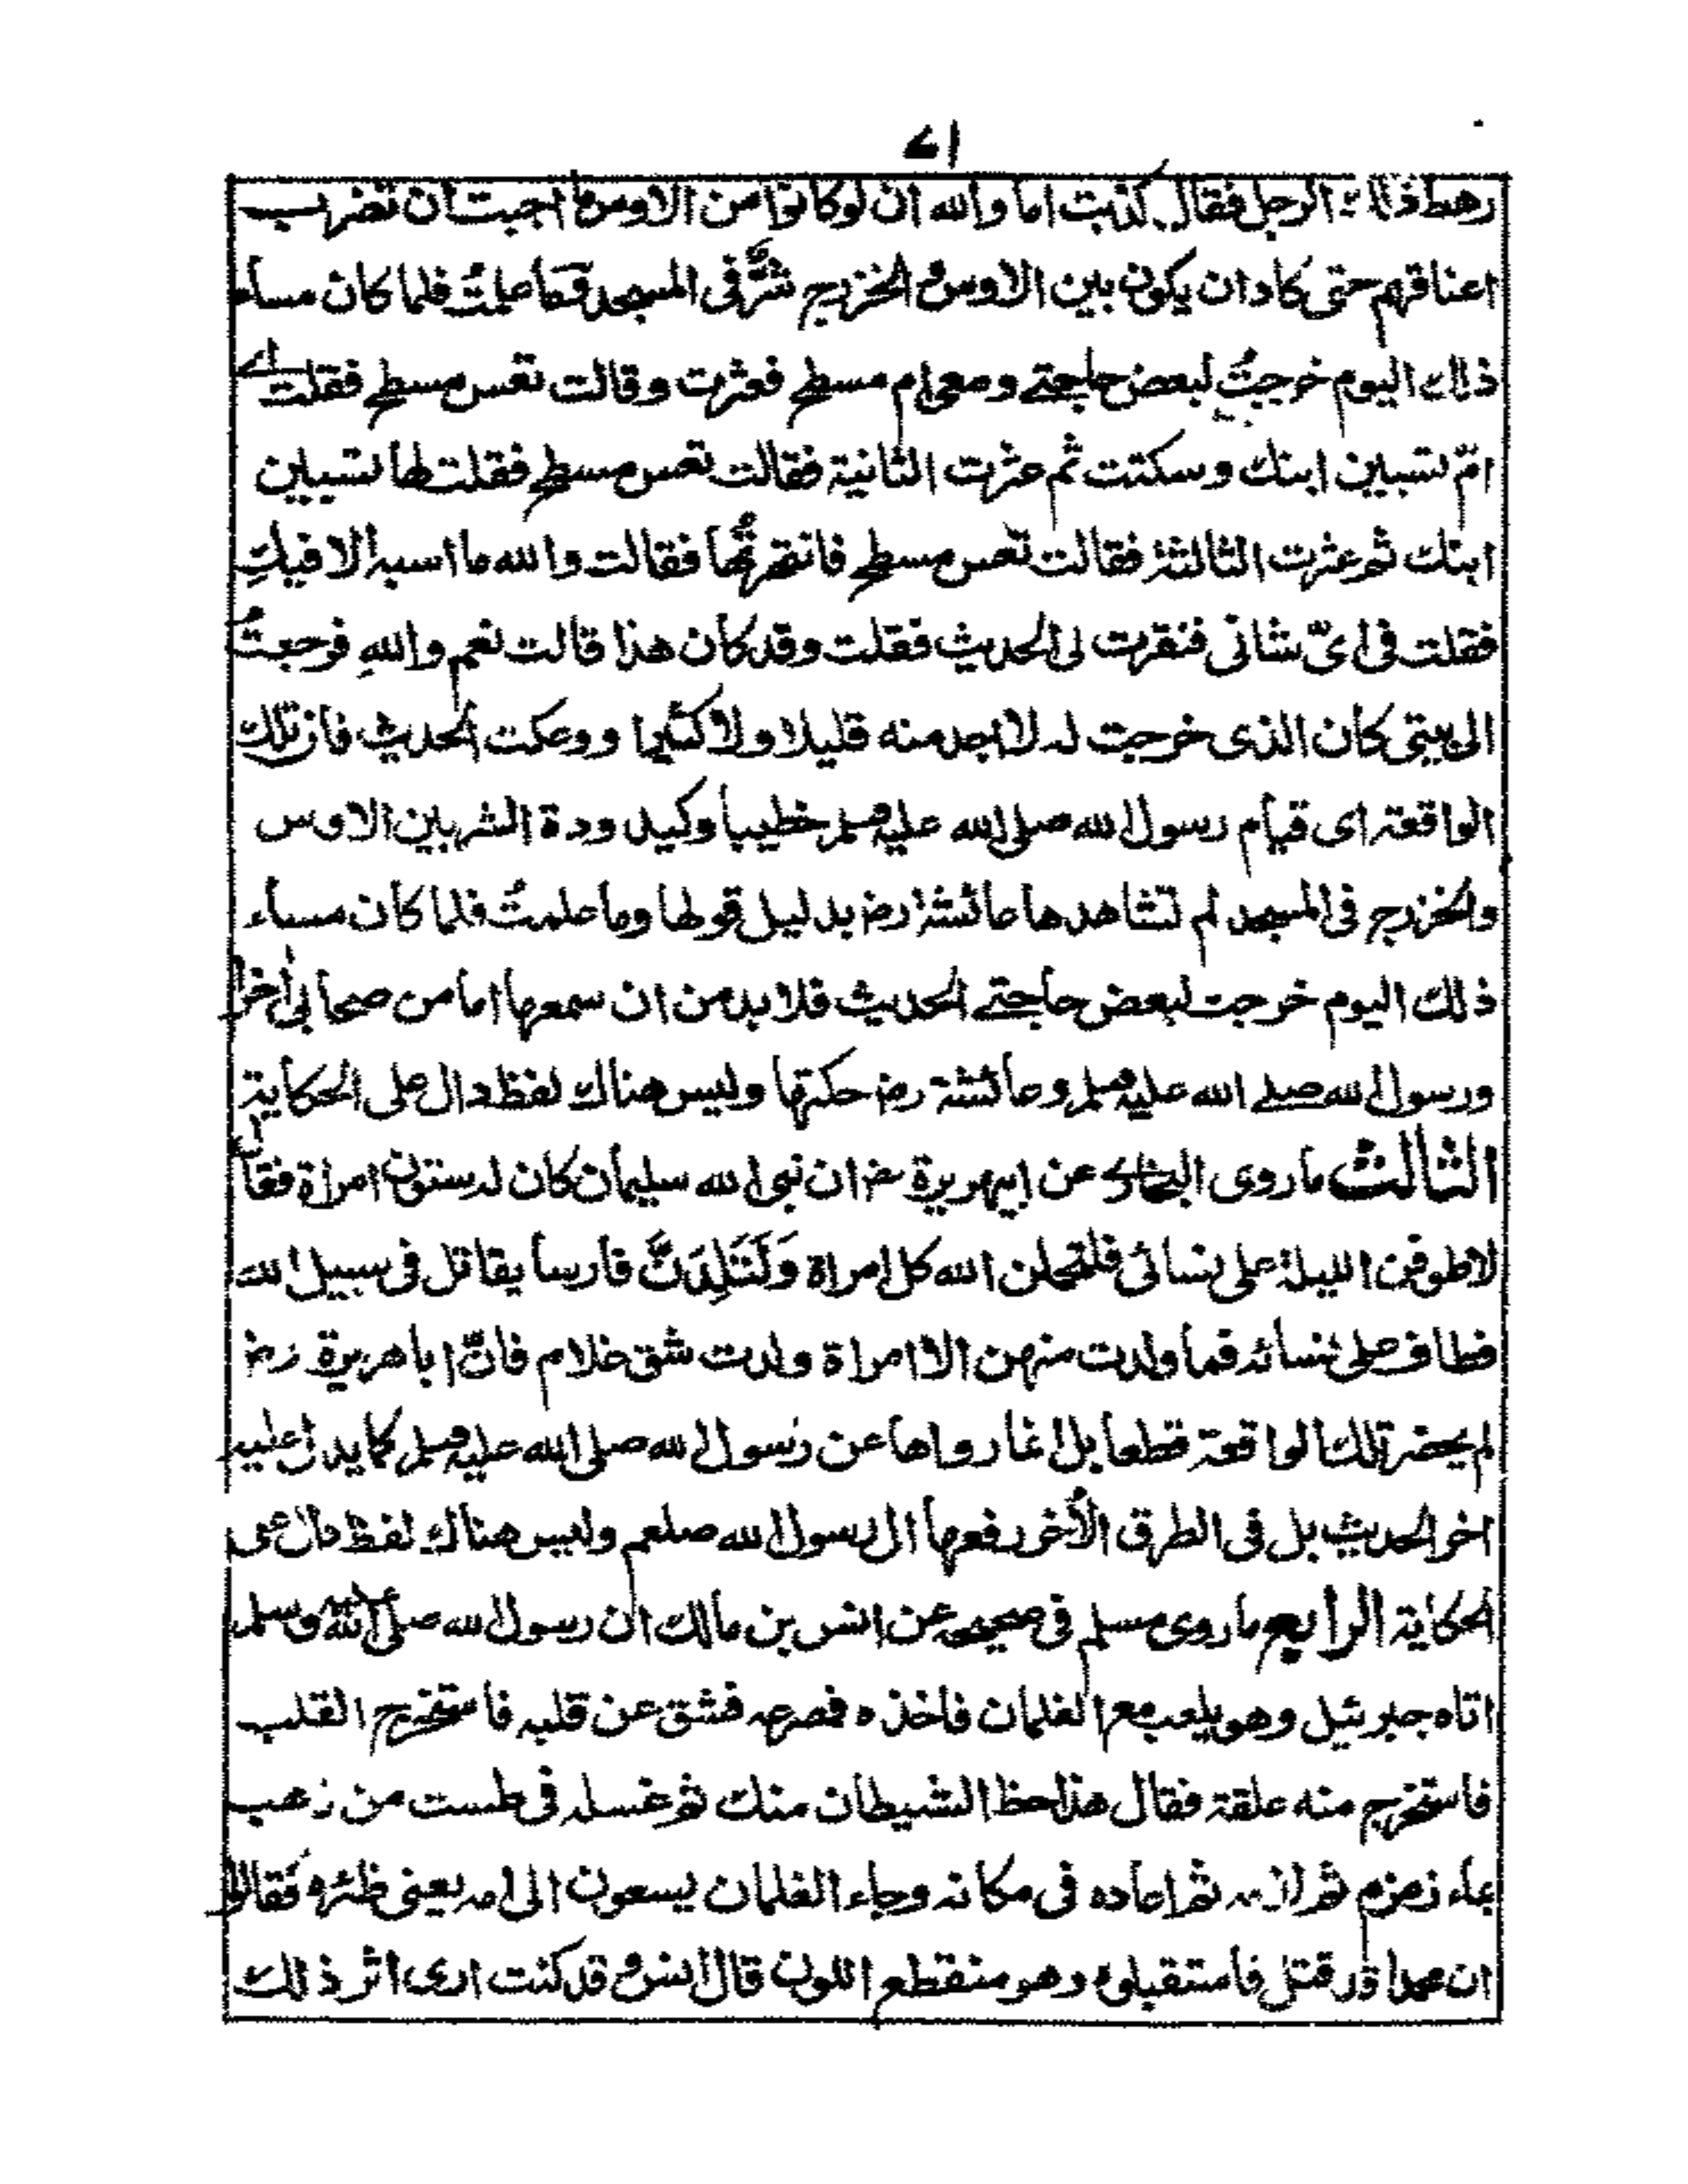 ٧١
رهط ذلك الرجل فقال كذبت اما والله ان لو كانوا من الاوس ما احببت ان تضرب
اعناقهم حتى كاد ان يكون بين الاوس والخزرج شرٌّ فى المسجد وما علمتُ فلما كان مساء
ذلك اليوم خرجتُ لبعض حاجتے ومعى ام مسطح فعثرت وقالت تعس مسطح فقلت اے
امّ تسبين ابنك وسكتت ثم عثرت الثانية فقالت تعس مسطح فقلت لها تسبين
ابنك ثم عثرت الثالثة فقالت تعس مسطح فانتهرتُها فقالت والله ما اسبه الا فيكِ
فقلت فى اىّ شانى فنقرت لى الحديث فقلت وقد كان هذا قالت نعم واللهِ فرجعتُ
الى بيتى كان الذى خرجت له لا اجد منه قليلا ولا كثيرا ووعكت الحديث فان تلك
الواقعة اى قيام رسول الله صلى الله عليه وسلم خطيبا وكيدودة الشر بين الاوس
والخزرج فى المسجد لم تشاهدها عائشة رض بدليل قولها وما علمتُ فلما كان مساء
ذلك اليوم خرجت لبعض حاجتے الحديث فلا بد من ان سمعها اما من صحابى اخر
ورسول الله صلے الله عليه وسلم وعائشة رض حكتها وليس هناك لفظ دال على الحكاية
الثالث ما روى البخارى عن ابى هريرة رض ان نبى الله سليمان كان له ستون امراة فقال
لاطوفن الليلة على نسائى فلتحملن الله كل امراة وَلَتَلِدَنَّ فارسا يقاتل فى سبيل الله
فطاف على نسائه فما ولدت منهن الا امراة ولدت شق غلام فانّ ابا هريرة رض
لم يحضر تلك الواقعة قطعا بل انما رواها عن رسول الله صلى الله عليه وسلم كما يدل عليه
اخر الحديث بل فى الطرق الأخر رفعها الى رسول الله صلعم وليس هناك لفظ دال على
الحكاية الرابع ما روى مسلم فى صحيحه عن انس بن مالك ان رسول الله صلى الله عليه وسلم
اتاه جبرئيل وهو يلعب مع الغلمان فاخذه فصرعه فشق عن قلبه فاستخرج القلب
فاستخرج منه علقة فقال هذا حظ الشيطان منك ثم غسله فى طست من ذهب
بماء زمزم ثم لامه ثم اعاده فى مكانه وجاء الغلمان يسعون الى امه يعنى ظئره فقالوا
ان محمدا قد قتل فاستقبلوه وهو منتقطع اللون قال انس وقد كنت ارى اثر ذلك